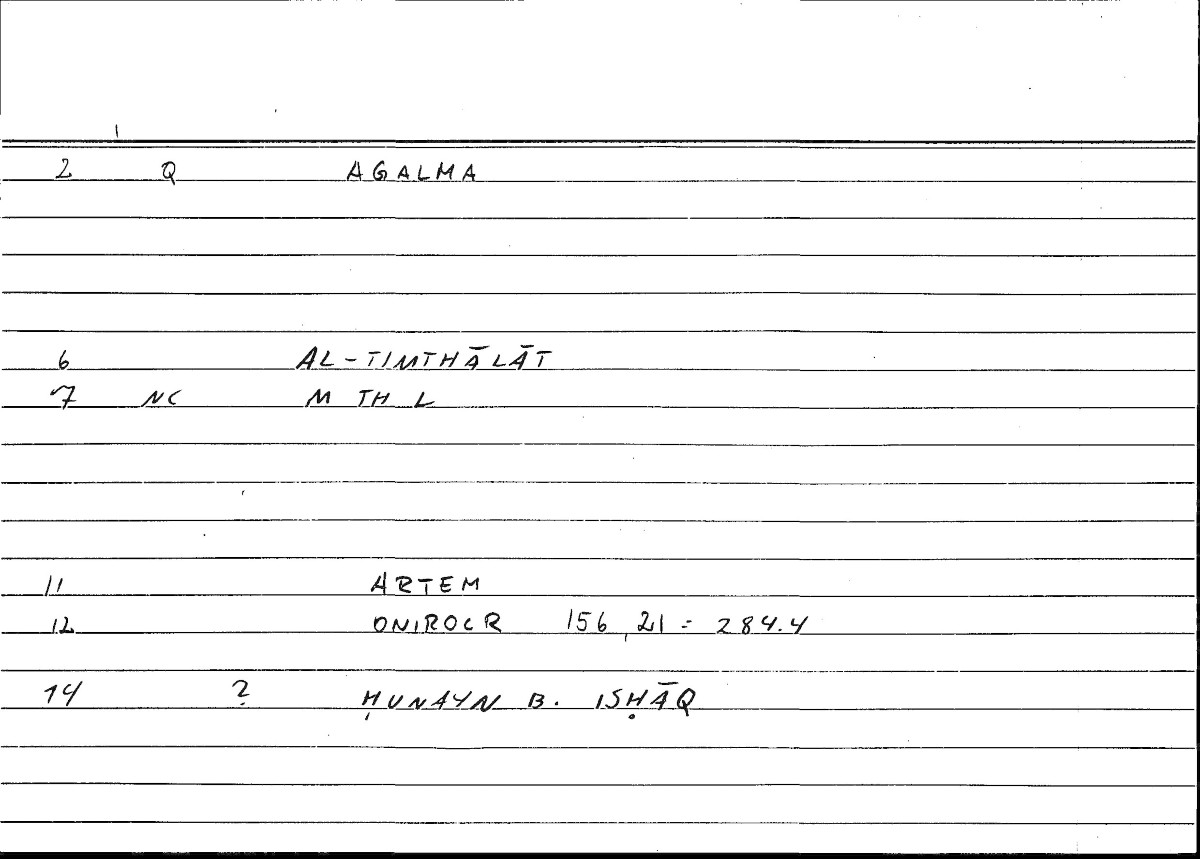 2 Q AGALMA
6 AL-TIMTHĀLĀT
7 NC M TH L
11 ARTEM
12 ONIROCR 156,21 = 284.4
14 ? ḤUNAYN B. ISḤĀQ